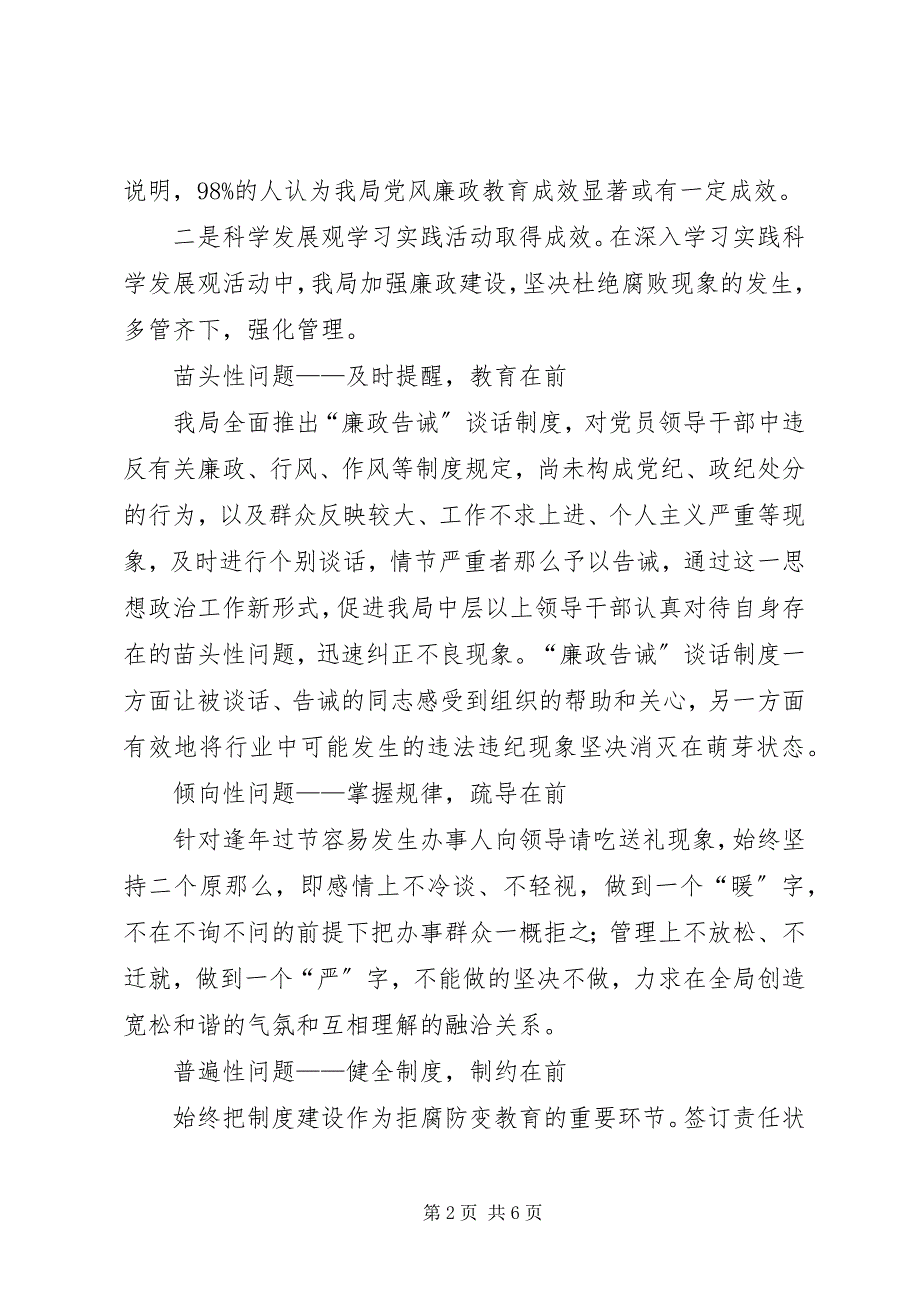 说明，98%的人认为我局党风廉政教育成效显著或有一定成效。
二是科学发展观学习实践活动取得成效。在深入学习实践科
学发展观活动中，我局加强廉政建设，坚决杜绝腐败现象的发生，
多管齐下，强化管理。
苗头性问题——及时提醒，教育在前
我局全面推出“廉政告诫〞谈话制度，对党员领导干部中违
反有关廉政、行风、作风等制度规定，尚未构成党纪、政纪处分
的行为，以及群众反映较大、工作不求上进、个人主义严重等现
象，及时进行个别谈话，情节严重者那么予以告诫，通过这一思
想政治工作新形式，促进我局中层以上领导干部认真对待自身存
在的苗头性问题，迅速纠正不良现象。“廉政告诫〞谈话制度一
方面让被谈话、告诫的同志感受到组织的帮助和关心，另一方面
有效地将行业中可能发生的违法违纪现象坚决消灭在萌芽状态。
倾向性问题——掌握规律，疏导在前
针对逢年过节容易发生办事人向领导请吃送礼现象，始终坚
持二个原那么，即感情上不冷谈、不轻视，做到一个“暖〞字，
不在不询不问的前提下把办事群众一概拒之；管理上不放松、不
迁就，做到一个“严〞字，不能做的坚决不做，力求在全局创造
宽松和谐的气氛和互相理解的融洽关系。
普遍性问题——健全制度，制约在前
始终把制度建设作为拒腐防变教育的重要环节。签订责任状
第 2 页 共 6 页